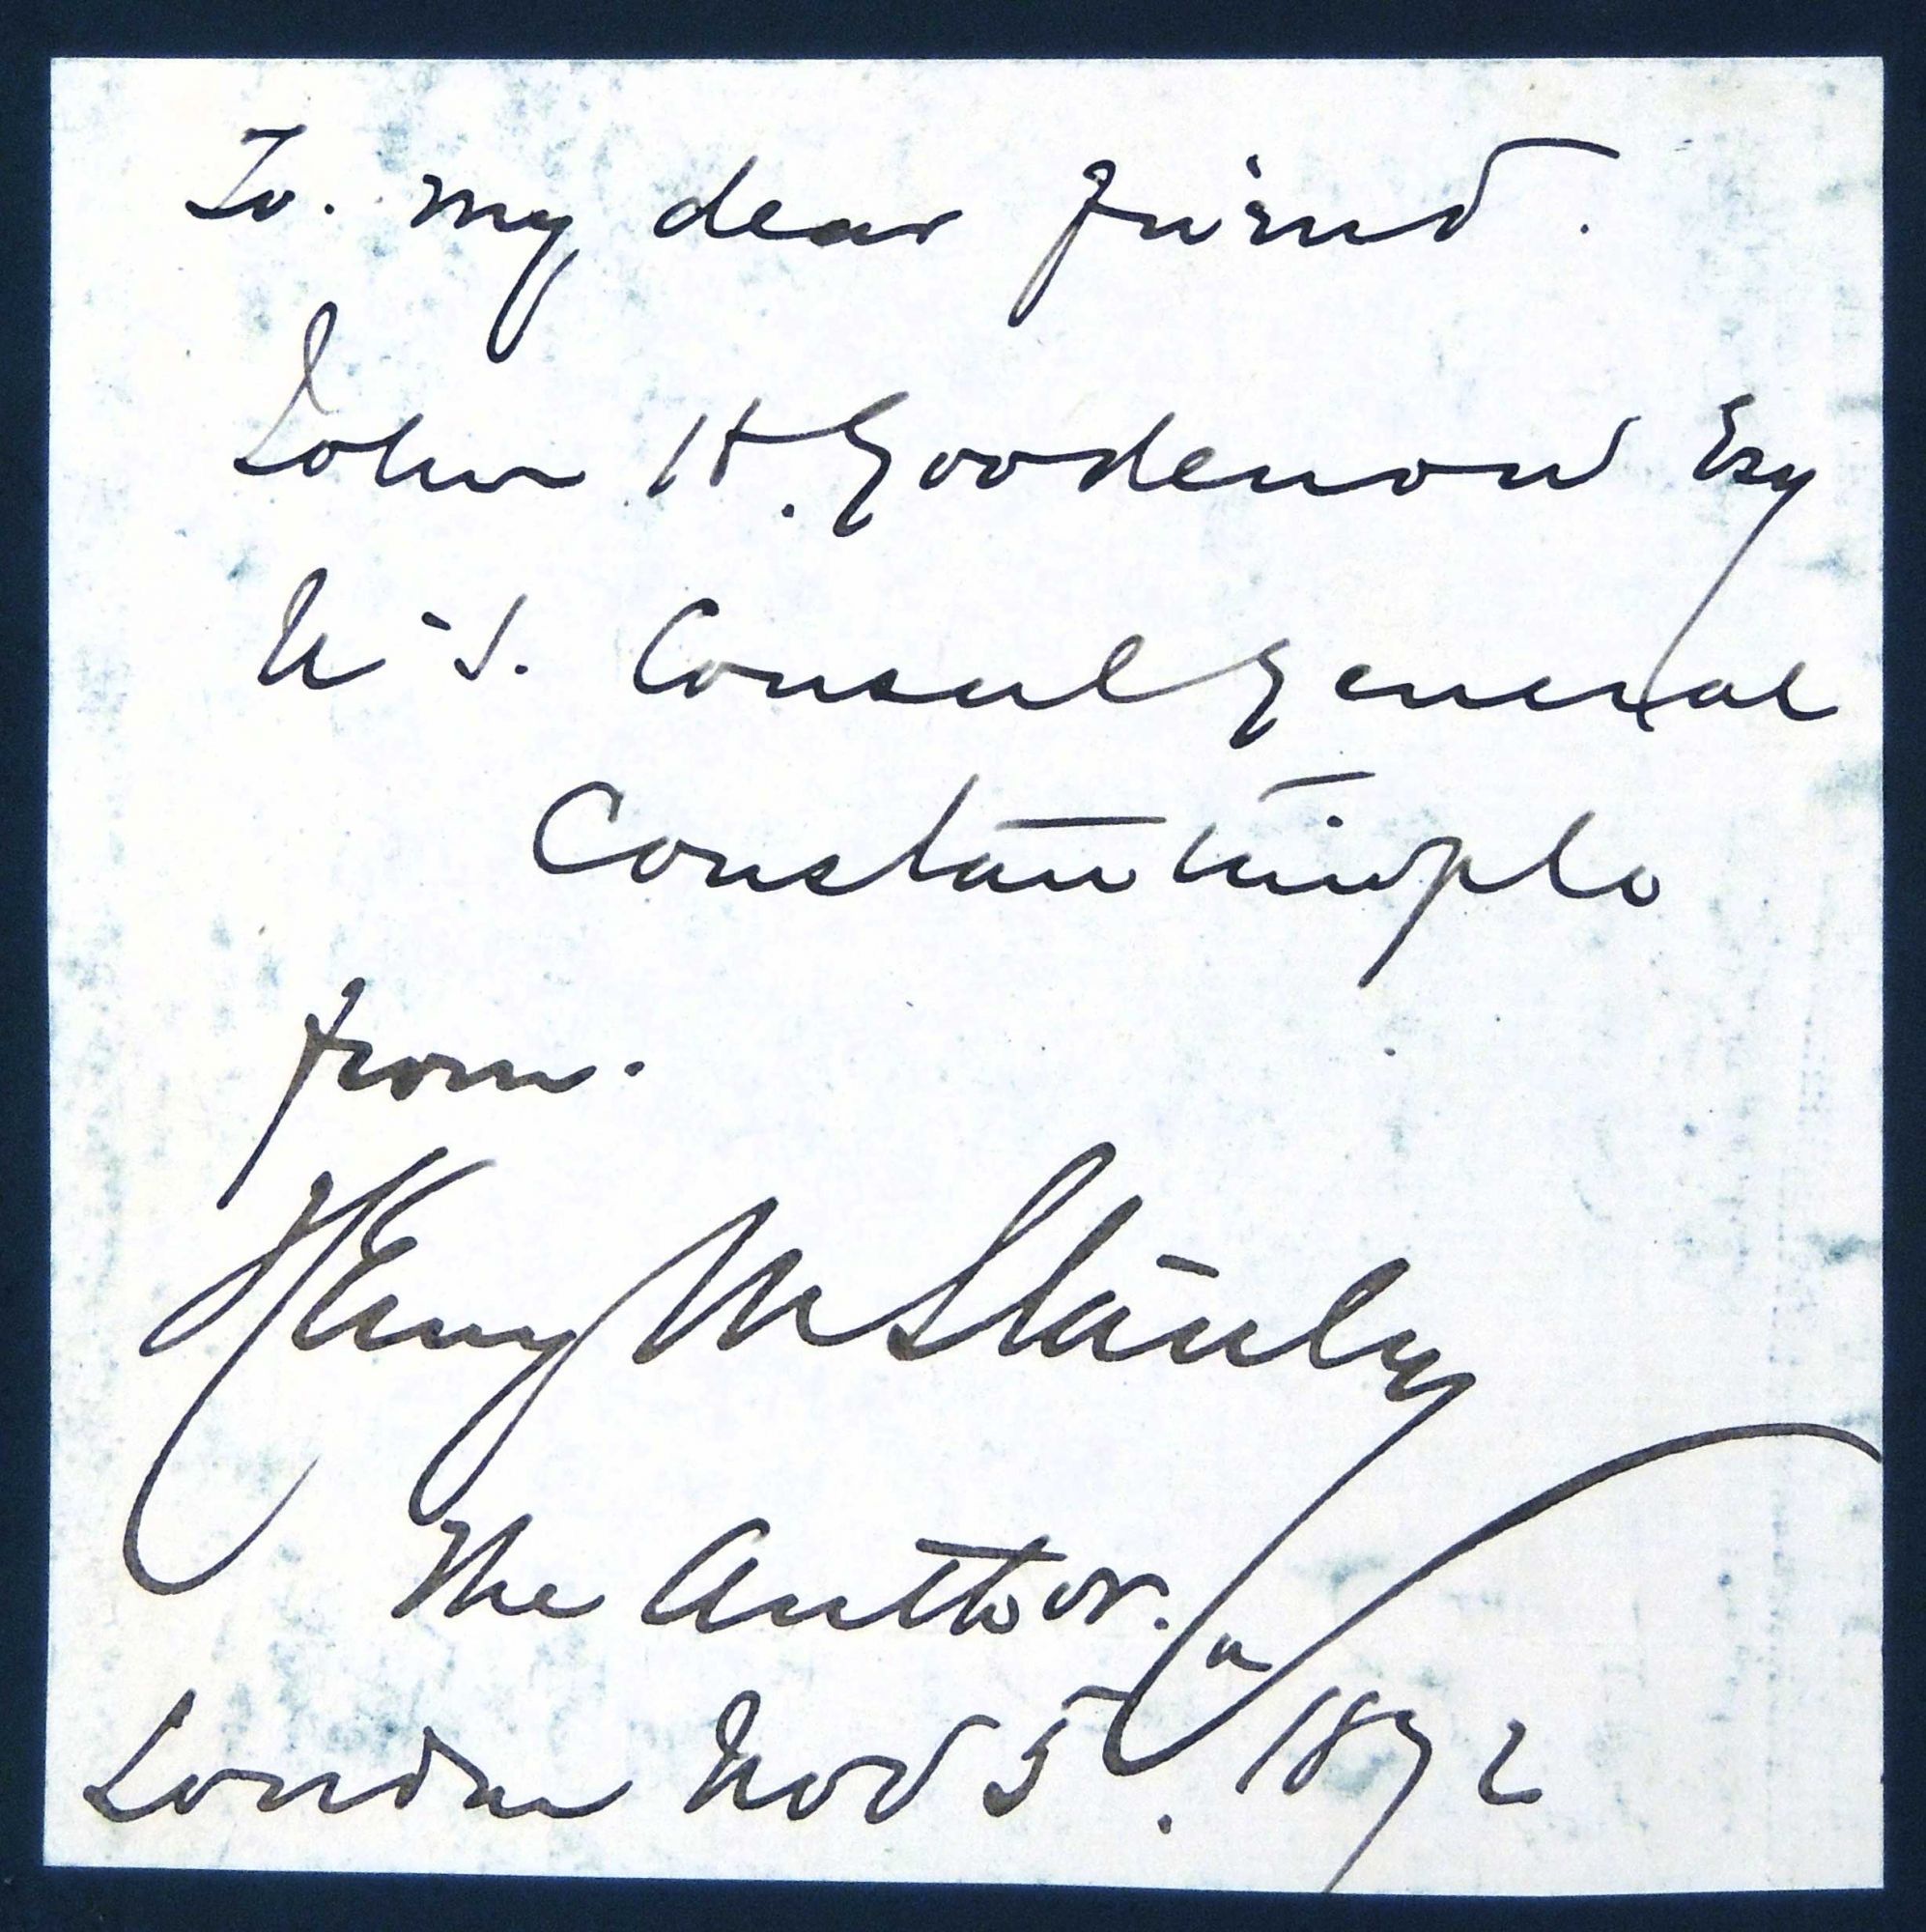 To. my dear friend.
John H. Goodenow Esq
U-S. Consul General
Constantinople
from.
Henry M Stanley
The Author.
London Nov 5th. 1872